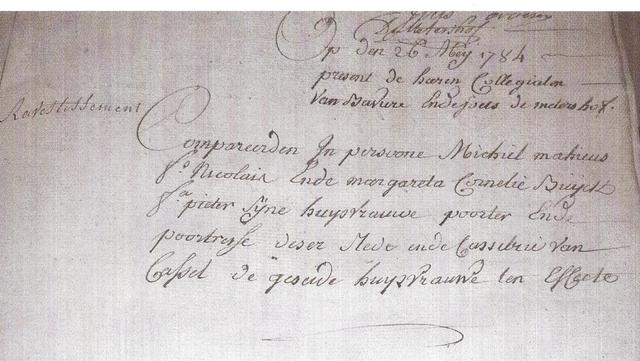 Op den 26 Meij 1784
present de heeren Collegialen
van Bavure Ende Joets de meters hof.
Ravestissement
Compareerden In persoone Michiel matheus
fs. Nicolais Ende margareta Cornelie Buijck
fa. pieter sijne huijsvrauwe poorter Ende
poortresse deser stede ende Casselrie van
Cassel de geseide huijsvrauwe ten Effecte